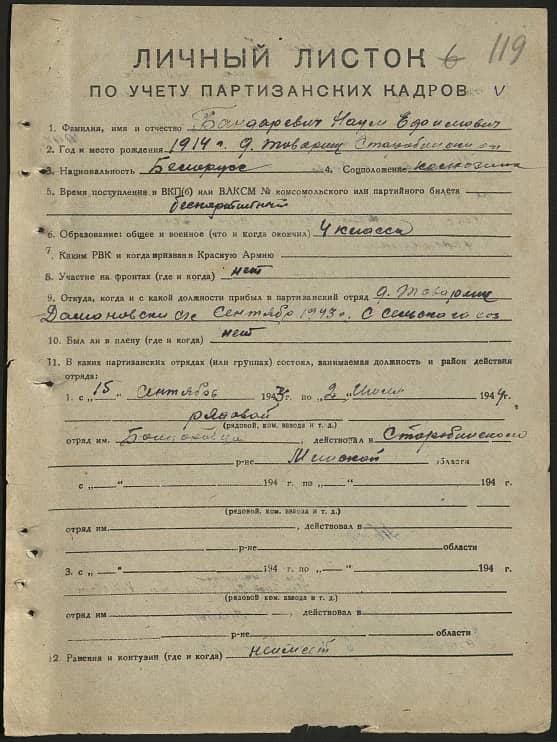 119
ЛИЧНЫЙ ЛИСТОК 6
ПО УЧЕТУ ПАРТИЗАНСКИХ КАДРОВ V
1. Фамилия, имя и отчество Бандаревич Наум Ефимович
2. Год и место рождения 1914 г. д. Товарищ
3. Национальность Белорусс 4. Соцположение
5. Время поступления в ВКП(б) или ВЛКСМ № комсомольского или партийного билета
беспартийный
6. Образование: общее и военное (что и когда окончил) 4 класса
7. Каким РВК и когда призван в Красную Армию
8. Участие на фронтах (где и когда) нет
9. Откуда, когда и с какой должности прибыл в партизанский отряд д. Товарищ
Домановский с/с Сентябрь 1943 г. с сельского хоз
10. Был ли в плену (где и когда) нет
11. В каких партизанских отрядах (или группах) состоял, занимаемая должность и район действия
отряда:
1. с „15" сентябрь 1943 г. по „2" июля 1944 г.
рядовой
(рядовой, ком. взвода и т. д.)
отряд им. , действовал в Старобинского
р-не Минской области
с „—" 194 г. по „—" 194 г.
(рядовой, ком. взвода и т. д.)
отряд им. , действовал в
р-не области
3. с „—" 194 г. по „—" 194 г.
(рядовой, ком. взвода и т. д.)
отряд им. , действовал в
р-не области
12. Ранения и контузии (где и когда) неимеет